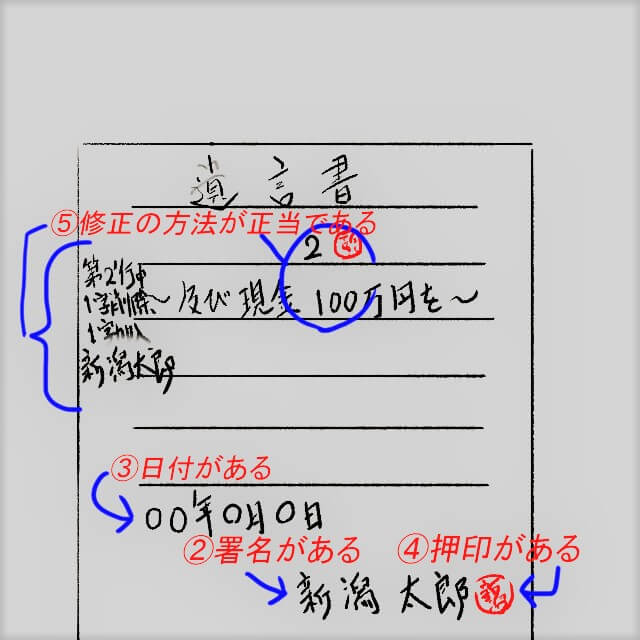 遺言書
⑤修正の方法が正当である
2
第2行中
1字削除
1字加入
新潟太郎
～及び現金100万円を～
③日付がある
○○年○月○日
②署名がある
④押印がある
新潟太郎